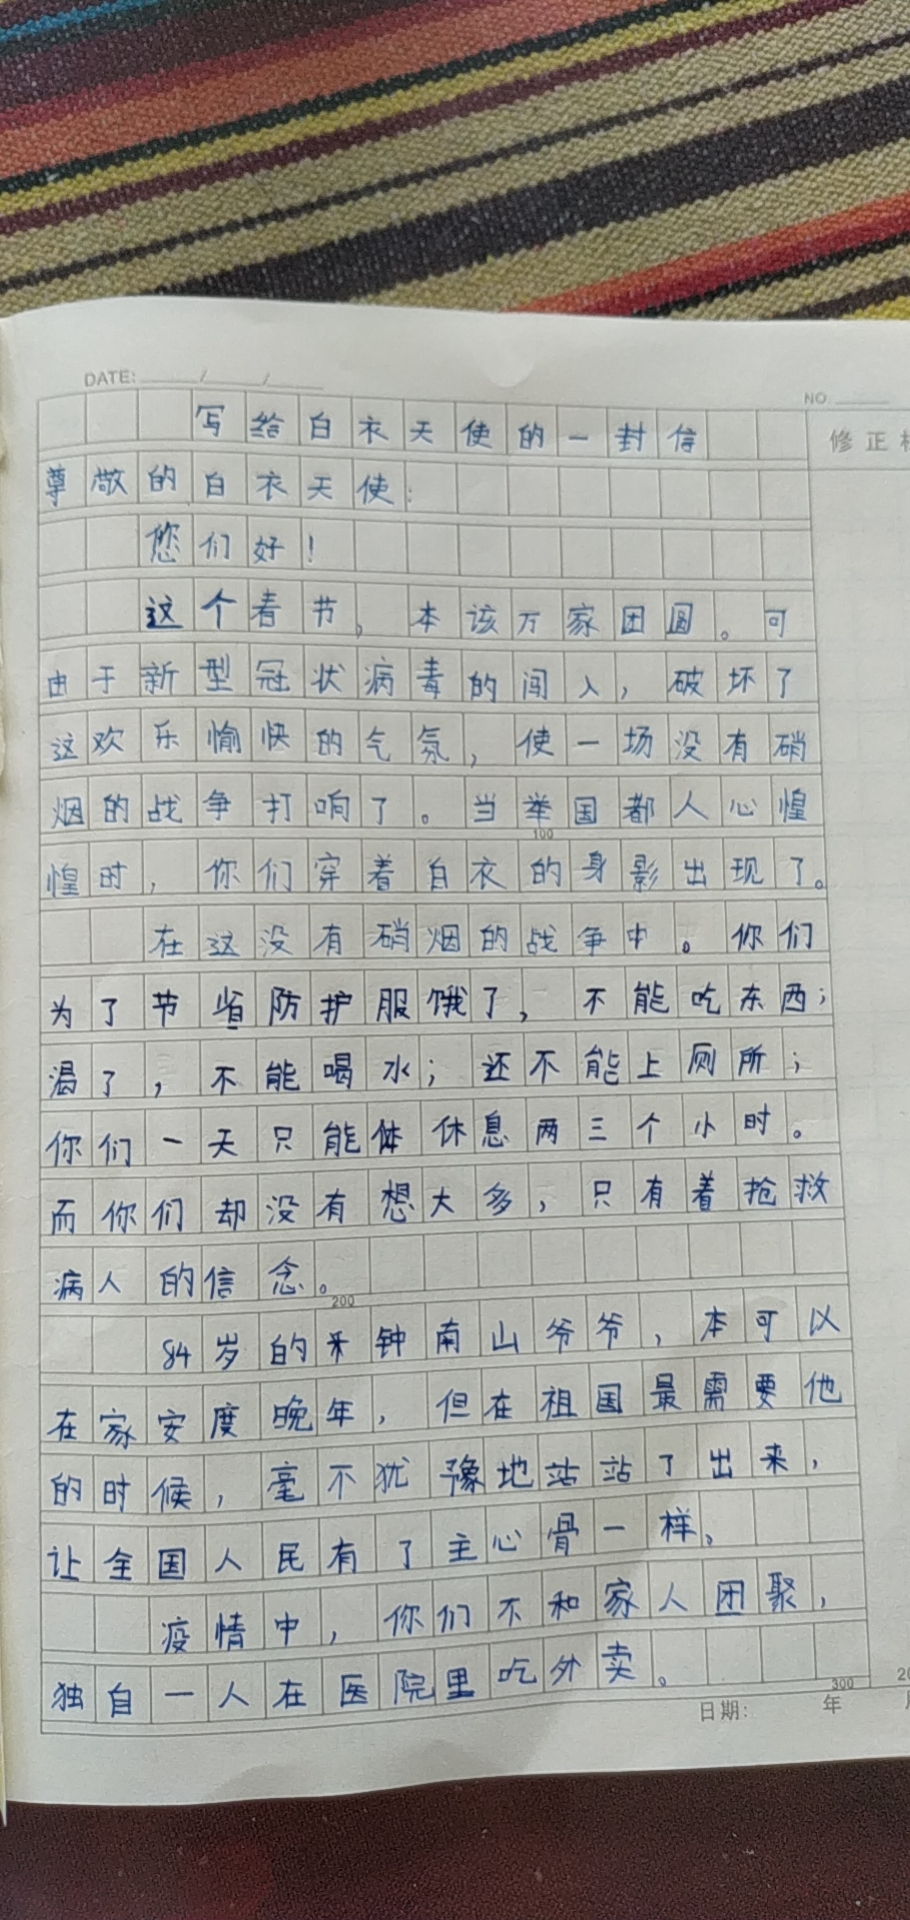 DATE: / /
NO.
写给白衣天使的一封信
修正
尊敬的白衣天使:
您们好!
这个春节,本该万家团圆。可
由于新型冠状病毒的闯入,破坏了
这欢乐愉快的气氛,使一场没有硝
烟的战争打响了。当举国都人心惶
100
惶时,你们穿着白衣的身影出现了。
在这没有硝烟的战争中。你们
为了节省防护服饿了,不能吃东西;
渴了,不能喝水;还不能上厕所;
你们一天只能体休息两三个小时。
而你们却没有想太多,只有着抢救
病人的信念。
200
84岁的钟南山爷爷,本可以
在家安度晚年,但在祖国最需要他
的时候,毫不犹豫地站站了出来,
让全国人民有了主心骨一样。
疫情中,你们不和家人团聚,
独自一人在医院里吃外卖。
300
日期: 年
20